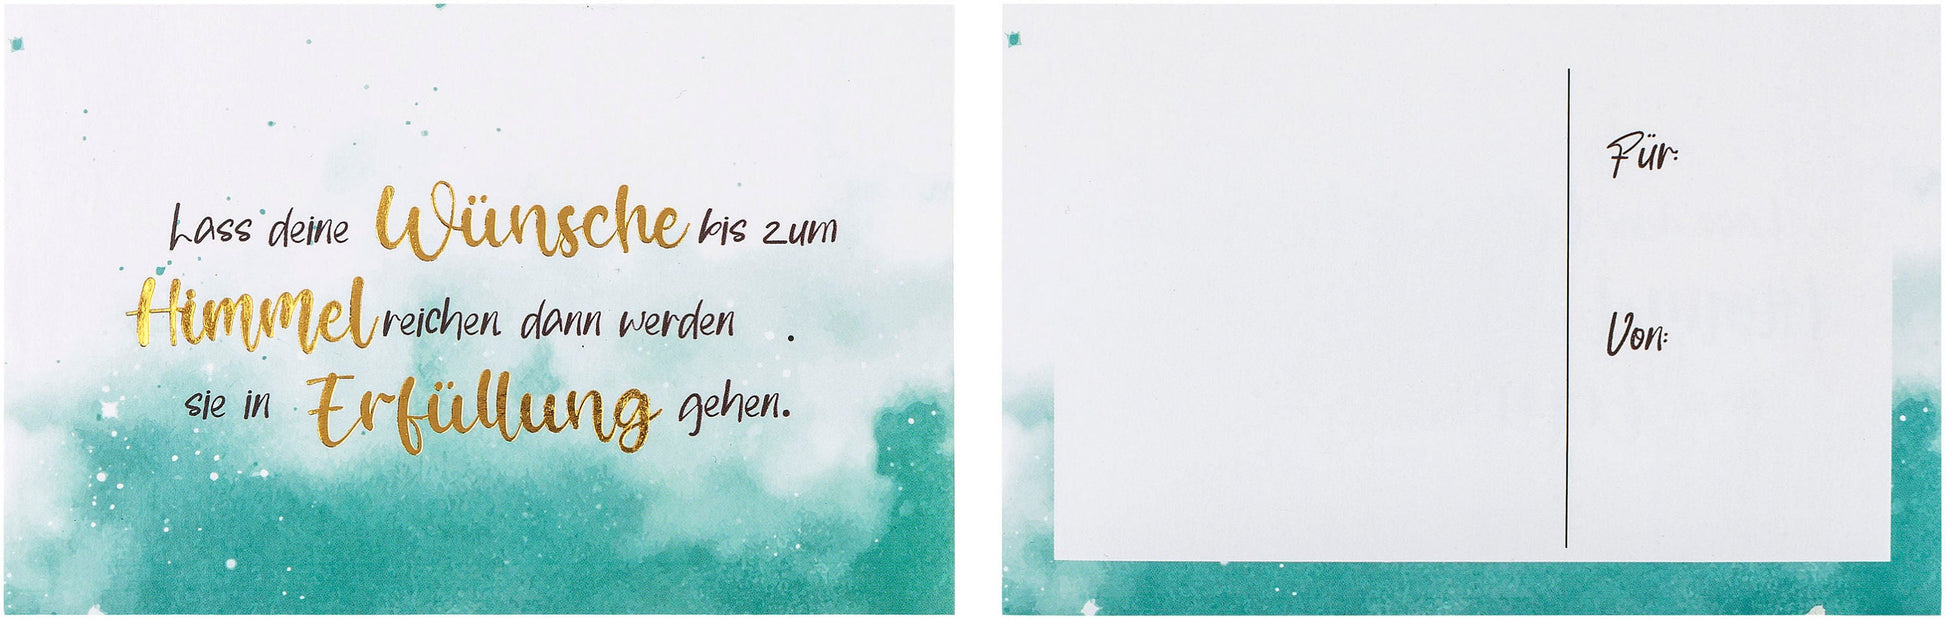 Lass deine Wünsche bis zum
Himmel reichen dann werden .
sie in Erfüllung gehen.
Für:
Von: